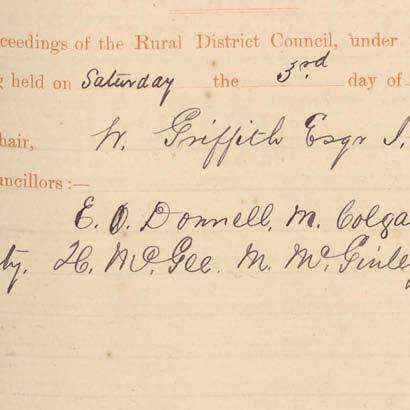 ceedings of the Rural District Council, under
g held on Saturday the 3rd day of
hair, W. Griffith Esqr J.
uncillors :—
E. O. Donnell, M. Colga
ty. H. McGee. M. McGinley